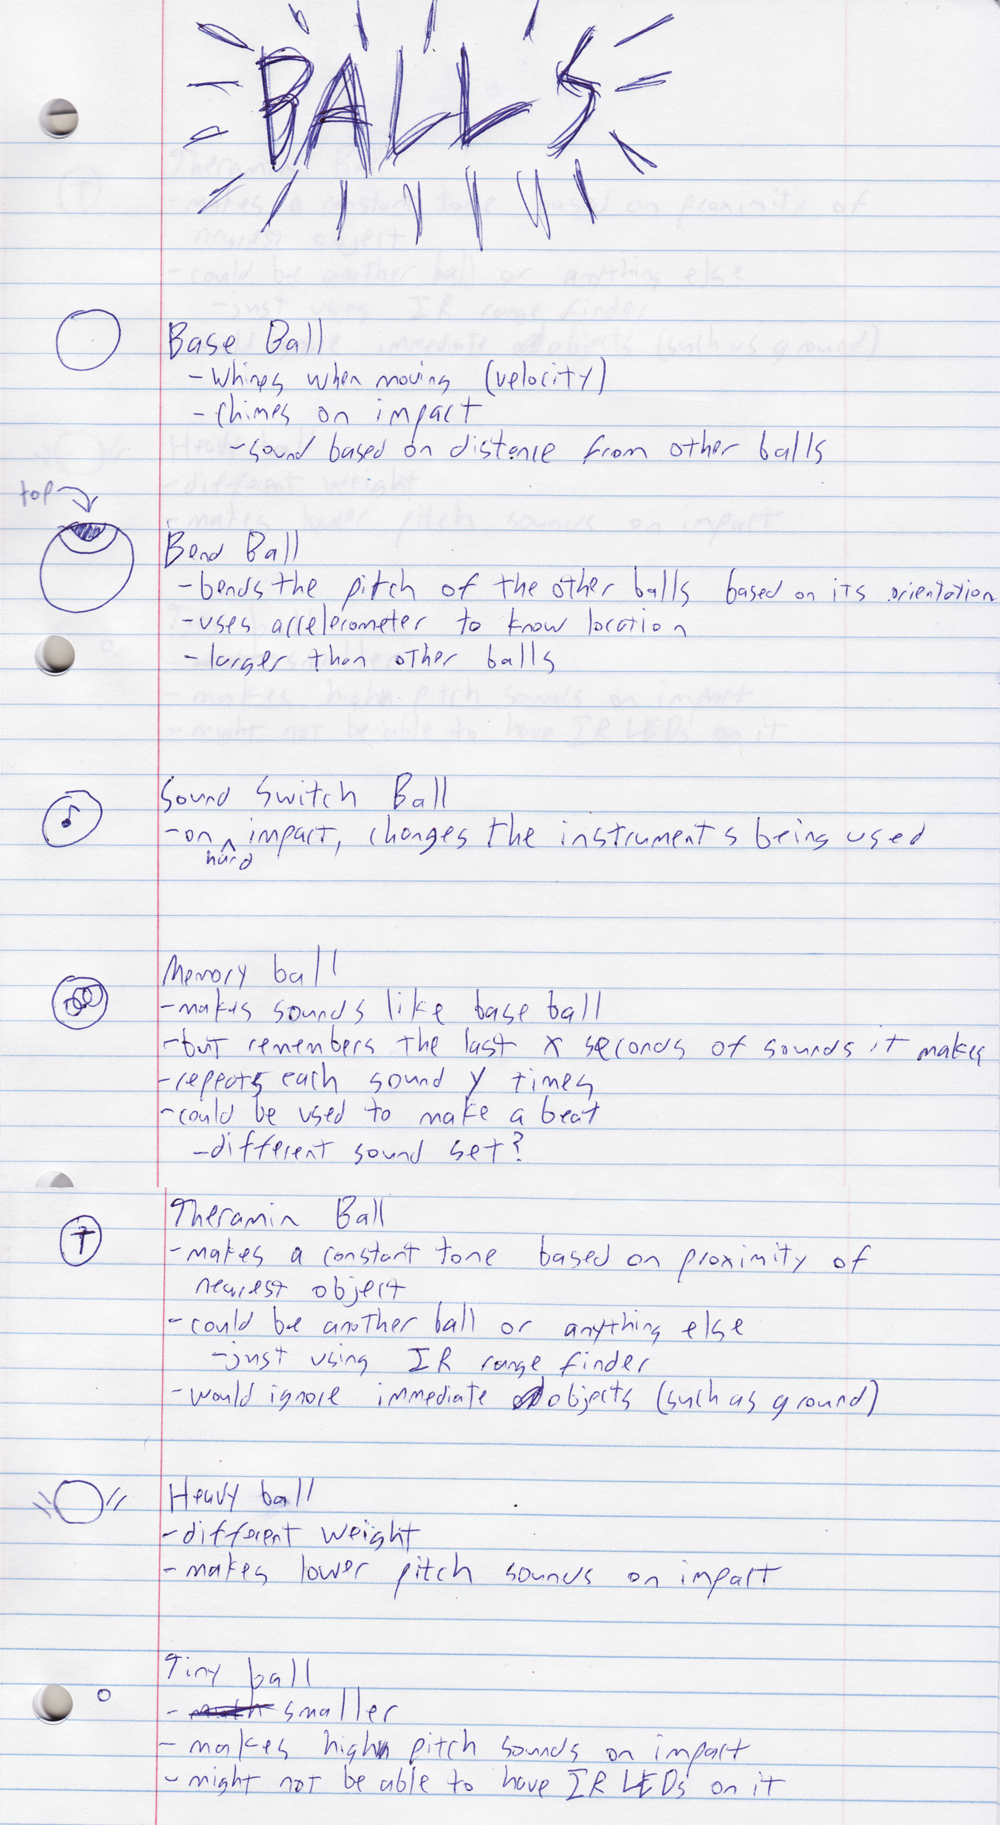 BALLS
Base Ball
- Whines when moving (velocity)
- Chimes on impact
- sound based on distance from other balls
top
Bend Ball
- bends the pitch of the other balls based on its orientation
- uses accelerometer to know location
- larger than other balls
Sound Switch Ball
- on hard impact, changes the instruments being used
Memory ball
- makes sounds like base ball
- but remembers the last x seconds of sounds it makes
- repeats each sound y times
- could be used to make a beat
- different sound set?
T
Theramin Ball
- makes a constant tone based on proximity of
nearest object
- could be another ball or anything else
- just using IR range finder
- would ignore immediate objects (such as ground)
Heavy ball
- different weight
- makes lower pitch sounds on impact
Tiny ball
- smaller
- makes high pitch sounds on impact
- might not be able to have IR LEDs on it